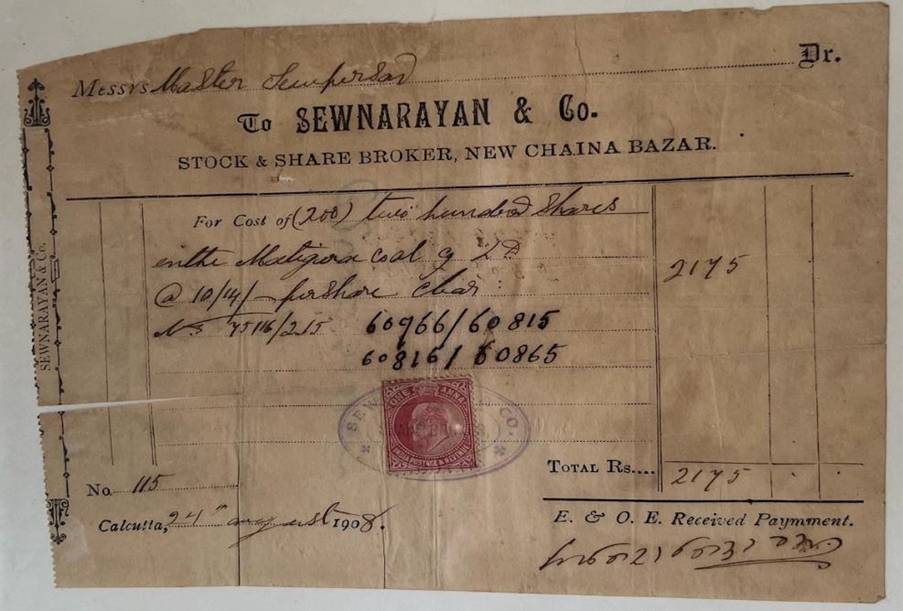 Messrs Master Sewpersad Dr.
To SEWNARAYAN & Co.
STOCK & SHARE BROKER, NEW CHAINA BAZAR.
For Cost of (200) two hundred Shares
in the coal 2175
@ 10/14/- per Share
60966/60815
60816/60865
SEWNARAYAN & Co.
ONE ANNA
INDIA POSTAGE & REVENUE
SEW CO.
TOTAL Rs.... 2175
No. 115
Calcutta, 24th august 1908.
E. & O. E. Received Paymment.